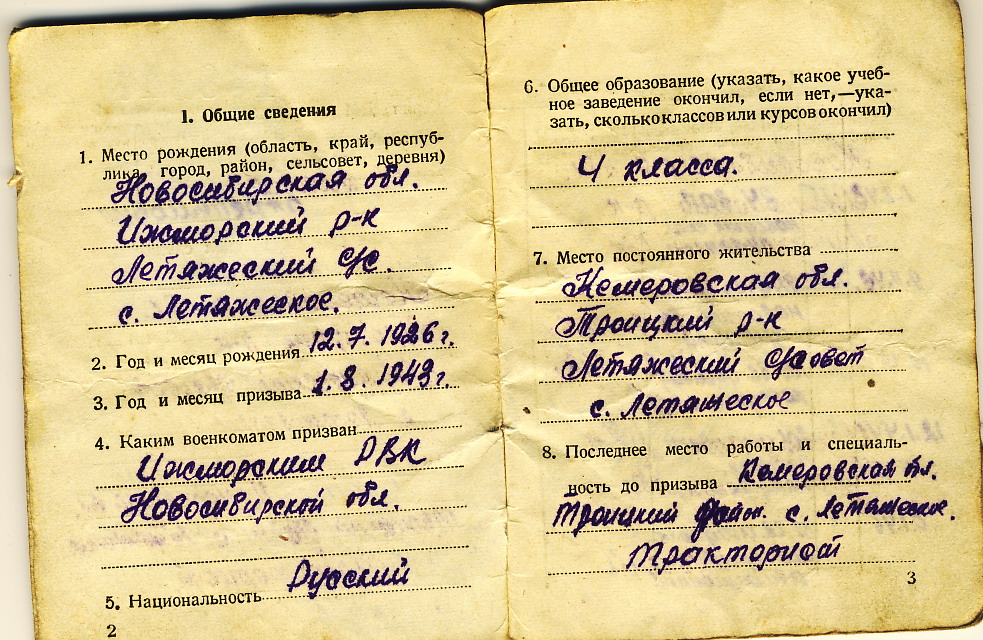 1. Общие сведения
1. Место рождения (область, край, респуб-
лика, город, район, сельсовет, деревня)
Новосибирская обл.
Ижморский р-н
Летяжеский с/с.
с. Летяжеское.
2. Год и месяц рождения 12.7.1926 г.
3. Год и месяц призыва 1.8.1943 г
4. Каким военкоматом призван
Ижморским РВК
Новосибирской обл.
5. Национальность Русский
2
6. Общее образование (указать, какое учеб-
ное заведение окончил, если нет,—ука-
зать, сколько классов или курсов окончил)
4 класса.
7. Место постоянного жительства
Кемеровская обл.
Троицкий р-н
Летяжеский с/совет
с. Летяжеское
8. Последнее место работы и специаль-
ность до призыва Кемеровская обл.
Троицкий район. с. Летяжеское.
Тракторист
3